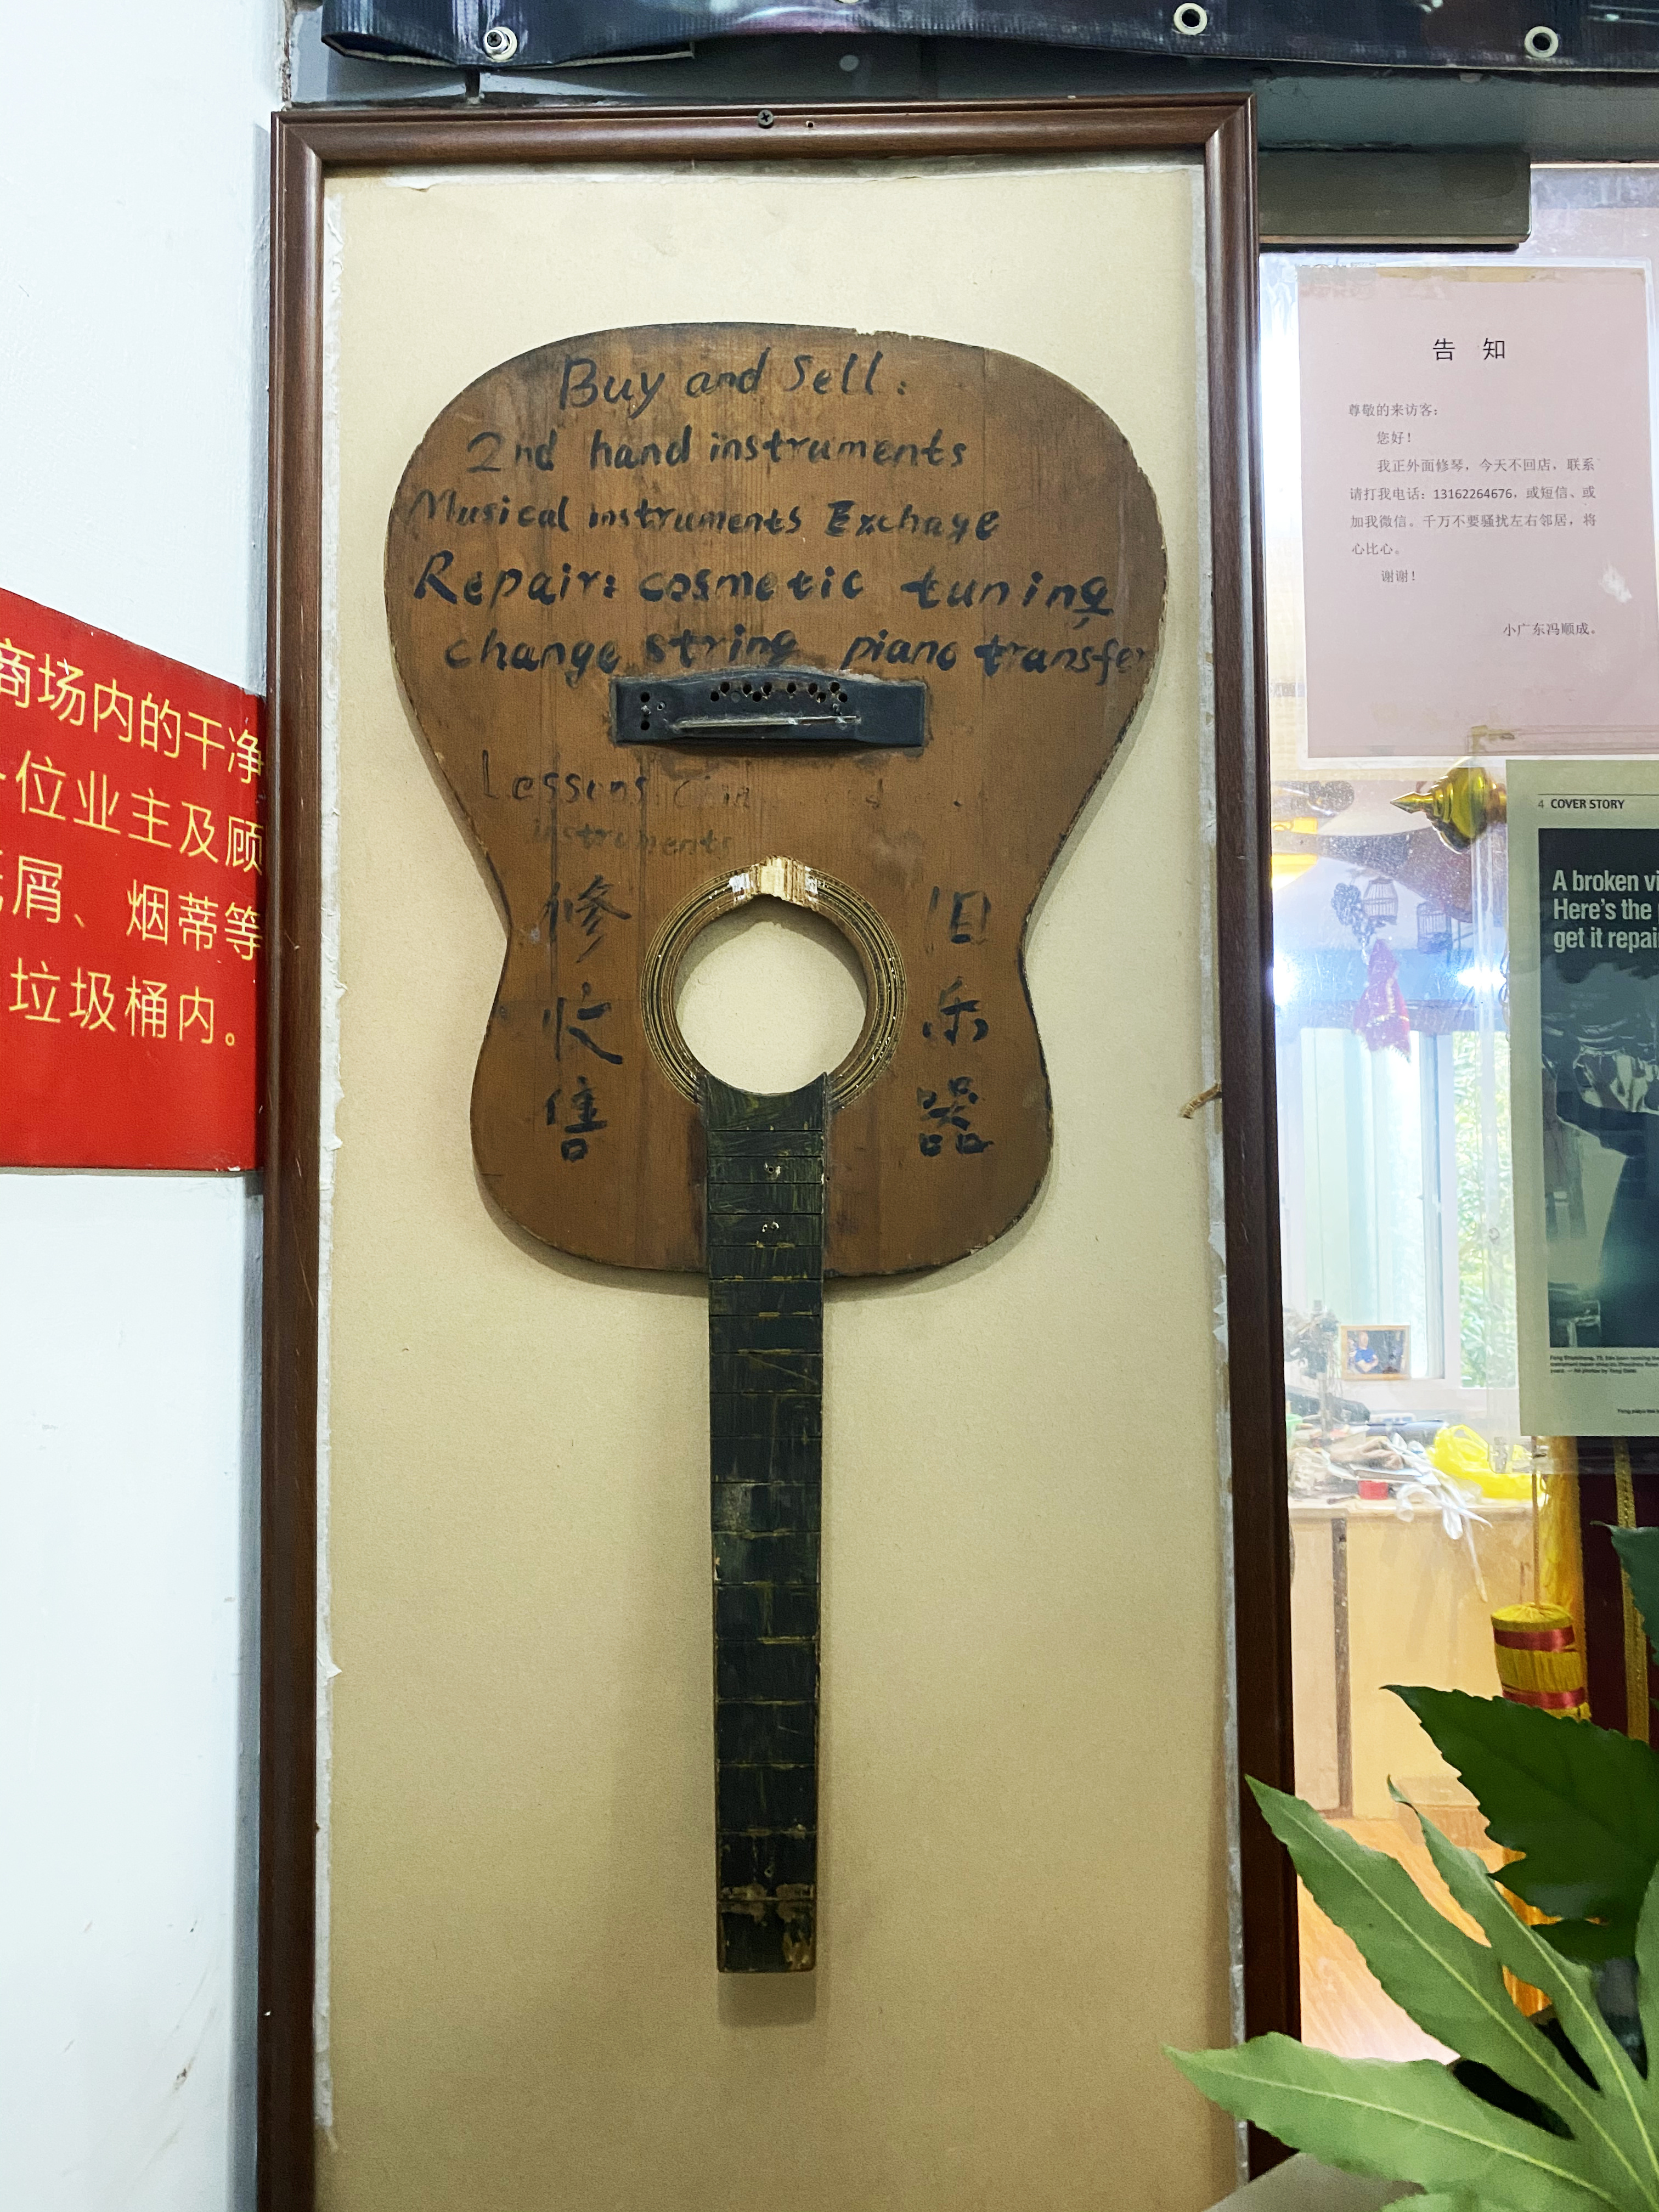 Buy and Sell:
2nd hand instruments
Musical instruments Exchage
Repair: cosmetic tuning
change string piano transfer
Lessons
instruments
修 旧
收 乐
售 器
商场内的干净
位业主及顾
屑、烟蒂等
垃圾桶内。
告 知
尊敬的来访客：
您好！
我正外面修琴，今天不回店，联系
请打我电话：13162264676，或短信、或
加我微信。千万不要骚扰左右邻居，将
心比心。
谢谢！
小广东冯顺成。
4 COVER STORY
A broken vi
Here's the
get it repai